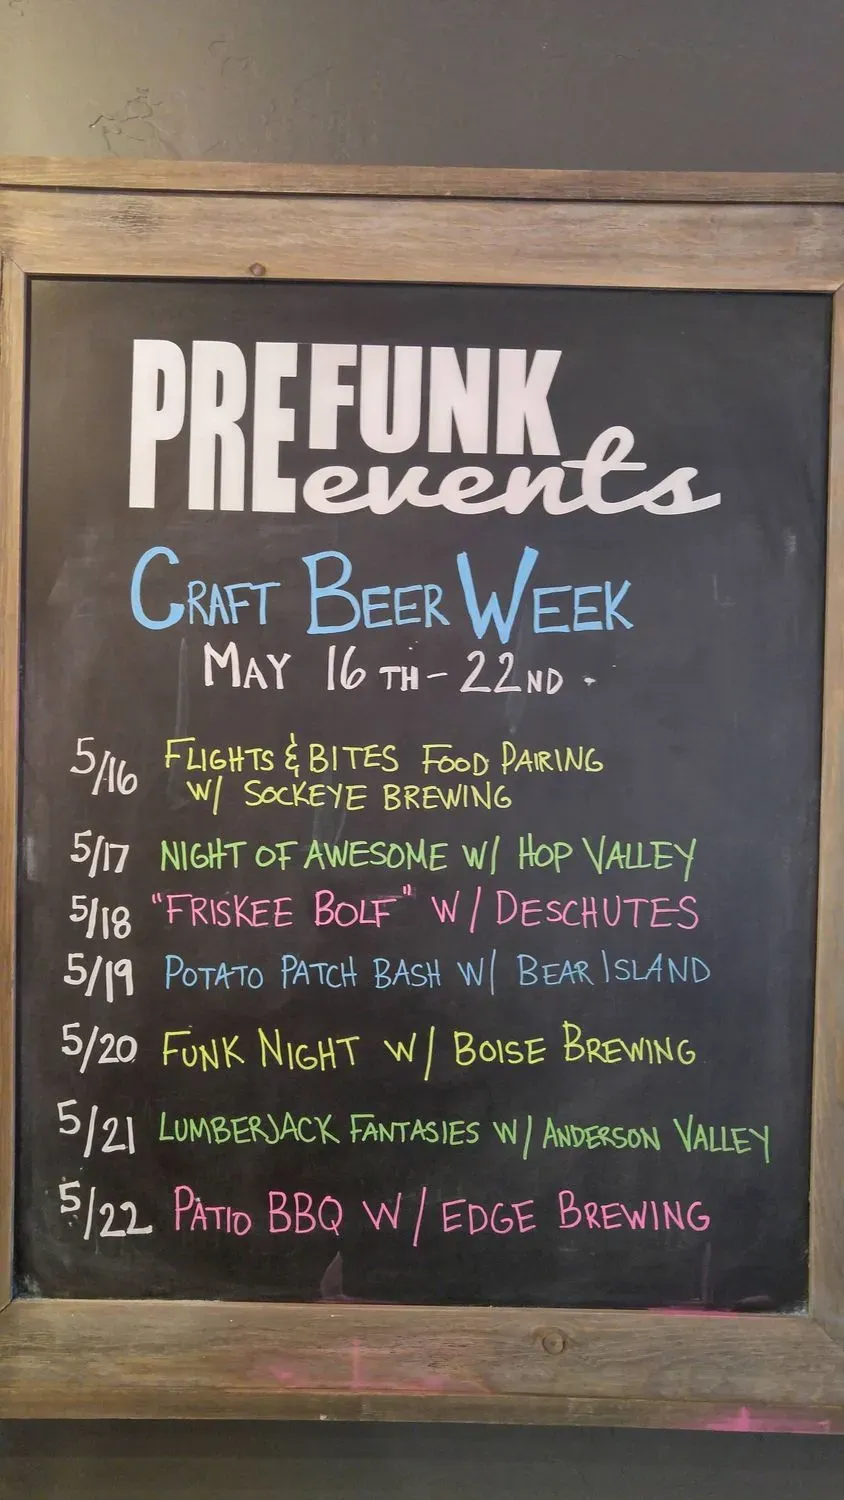 PREFUNK
events
CRAFT BEER WEEK
MAY 16TH - 22ND
5/16 FLIGHTS & BITES FOOD PAIRING
W/ SOCKEYE BREWING
5/17 NIGHT OF AWESOME W/ HOP VALLEY
5/18 "FRISKEE BOLF" W/ DESCHUTES
5/19 POTATO PATCH BASH W/ BEAR ISLAND
5/20 FUNK NIGHT W/ BOISE BREWING
5/21 LUMBERJACK FANTASIES W/ ANDERSON VALLEY
5/22 PATIO BBQ W/ EDGE BREWING